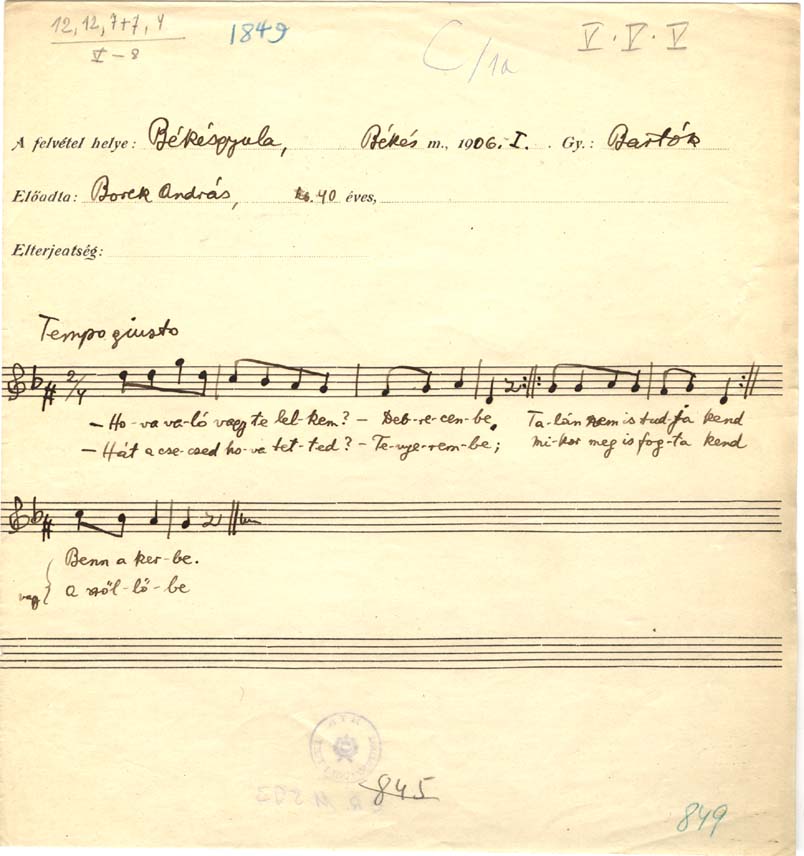 12, 12, 7+7, 4
V – 8
1849
C/1a
V · V · V
A felvétel helye: Békésgyula, Békés m., 1906. I. Gy.: Bartók
Előadta: Borek András, 40 éves,
Elterjedtség:
Tempo giusto
2/4
– Ho-va va-ló vagy te lel-kem? – Deb-re-cen-be. Ta-lán nem is tud-ja kend
– Hát a cse-csed ho-va tet-ted? – Te-nye-rem-be; mi-kor meg is fog-ta kend
Benn a ker-be.
vagy a szől-lő-be
845
849